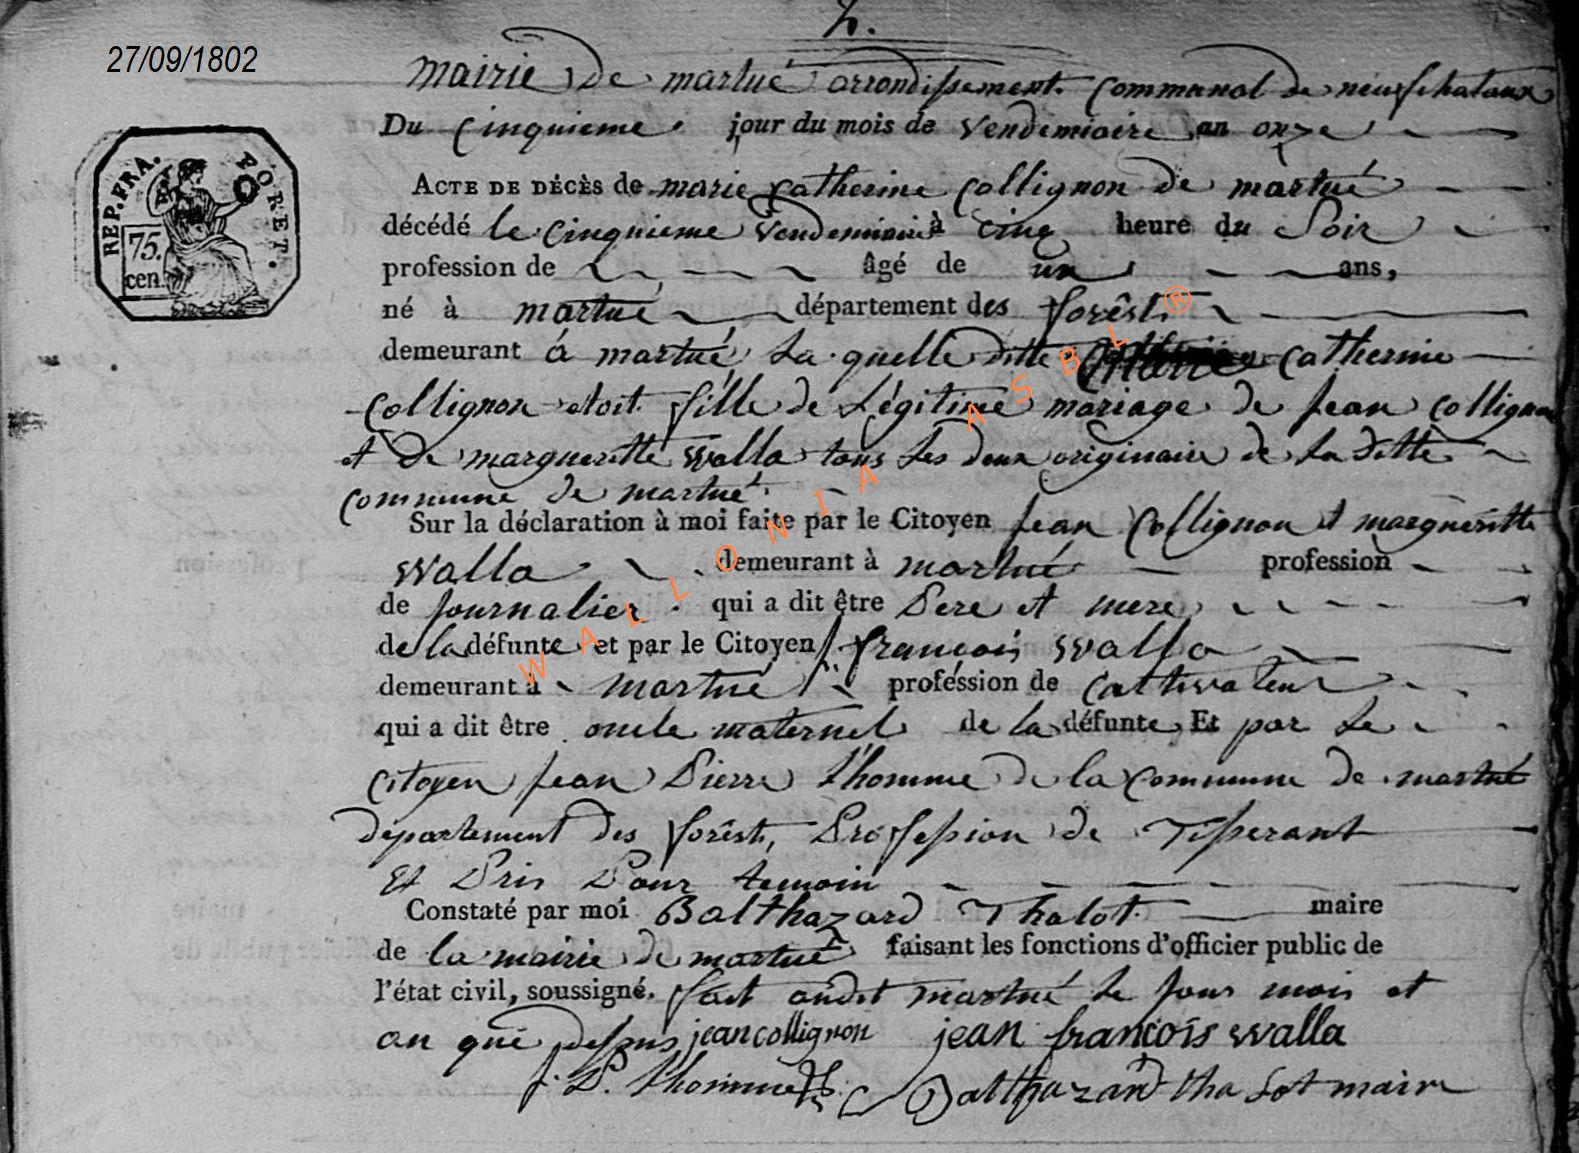 2.
27/09/1802
mairie de martué arrondissement communal de neufchataux
Du cinquieme jour du mois de vendemiaire an onze
REP. FRA. FORET.
75.
cen.
ACTE DE DÉCÈS de marie catherine collignon de martué
décédé le cinquieme vendemiaire à cinq heure du soir
profession de âgé de un ans,
né à martué département des forêsts
demeurant à martué, la quelle ditte marie catherine
collignon etoit fille de Légitime mariage de jean collignon
et de margueritte walla tous les deux originaire de la ditte
commune de martué.
Sur la déclaration à moi faite par le Citoyen jean collignon et margueritte
walla demeurant à martué profession
de journalier qui a dit être Pere et mere
de la défunte et par le Citoyen j. françois walla
demeurant à martué profession de cultivateur
qui a dit être oncle maternel de la défunte Et par le
citoyen jean Pierre l'homme de la commune de martué
département des forêsts, Profession de Tisserant
Et Pris Pour temoin
Constaté par moi Balthazard Thalot maire
de la mairie de martué faisant les fonctions d'officier public de
l'état civil, soussigné. fait audit martué le jour mois et
an que dessus jean collignon jean françois walla
j. P. l'homme Balthazard thalot maire
WALLONIA ASBL®